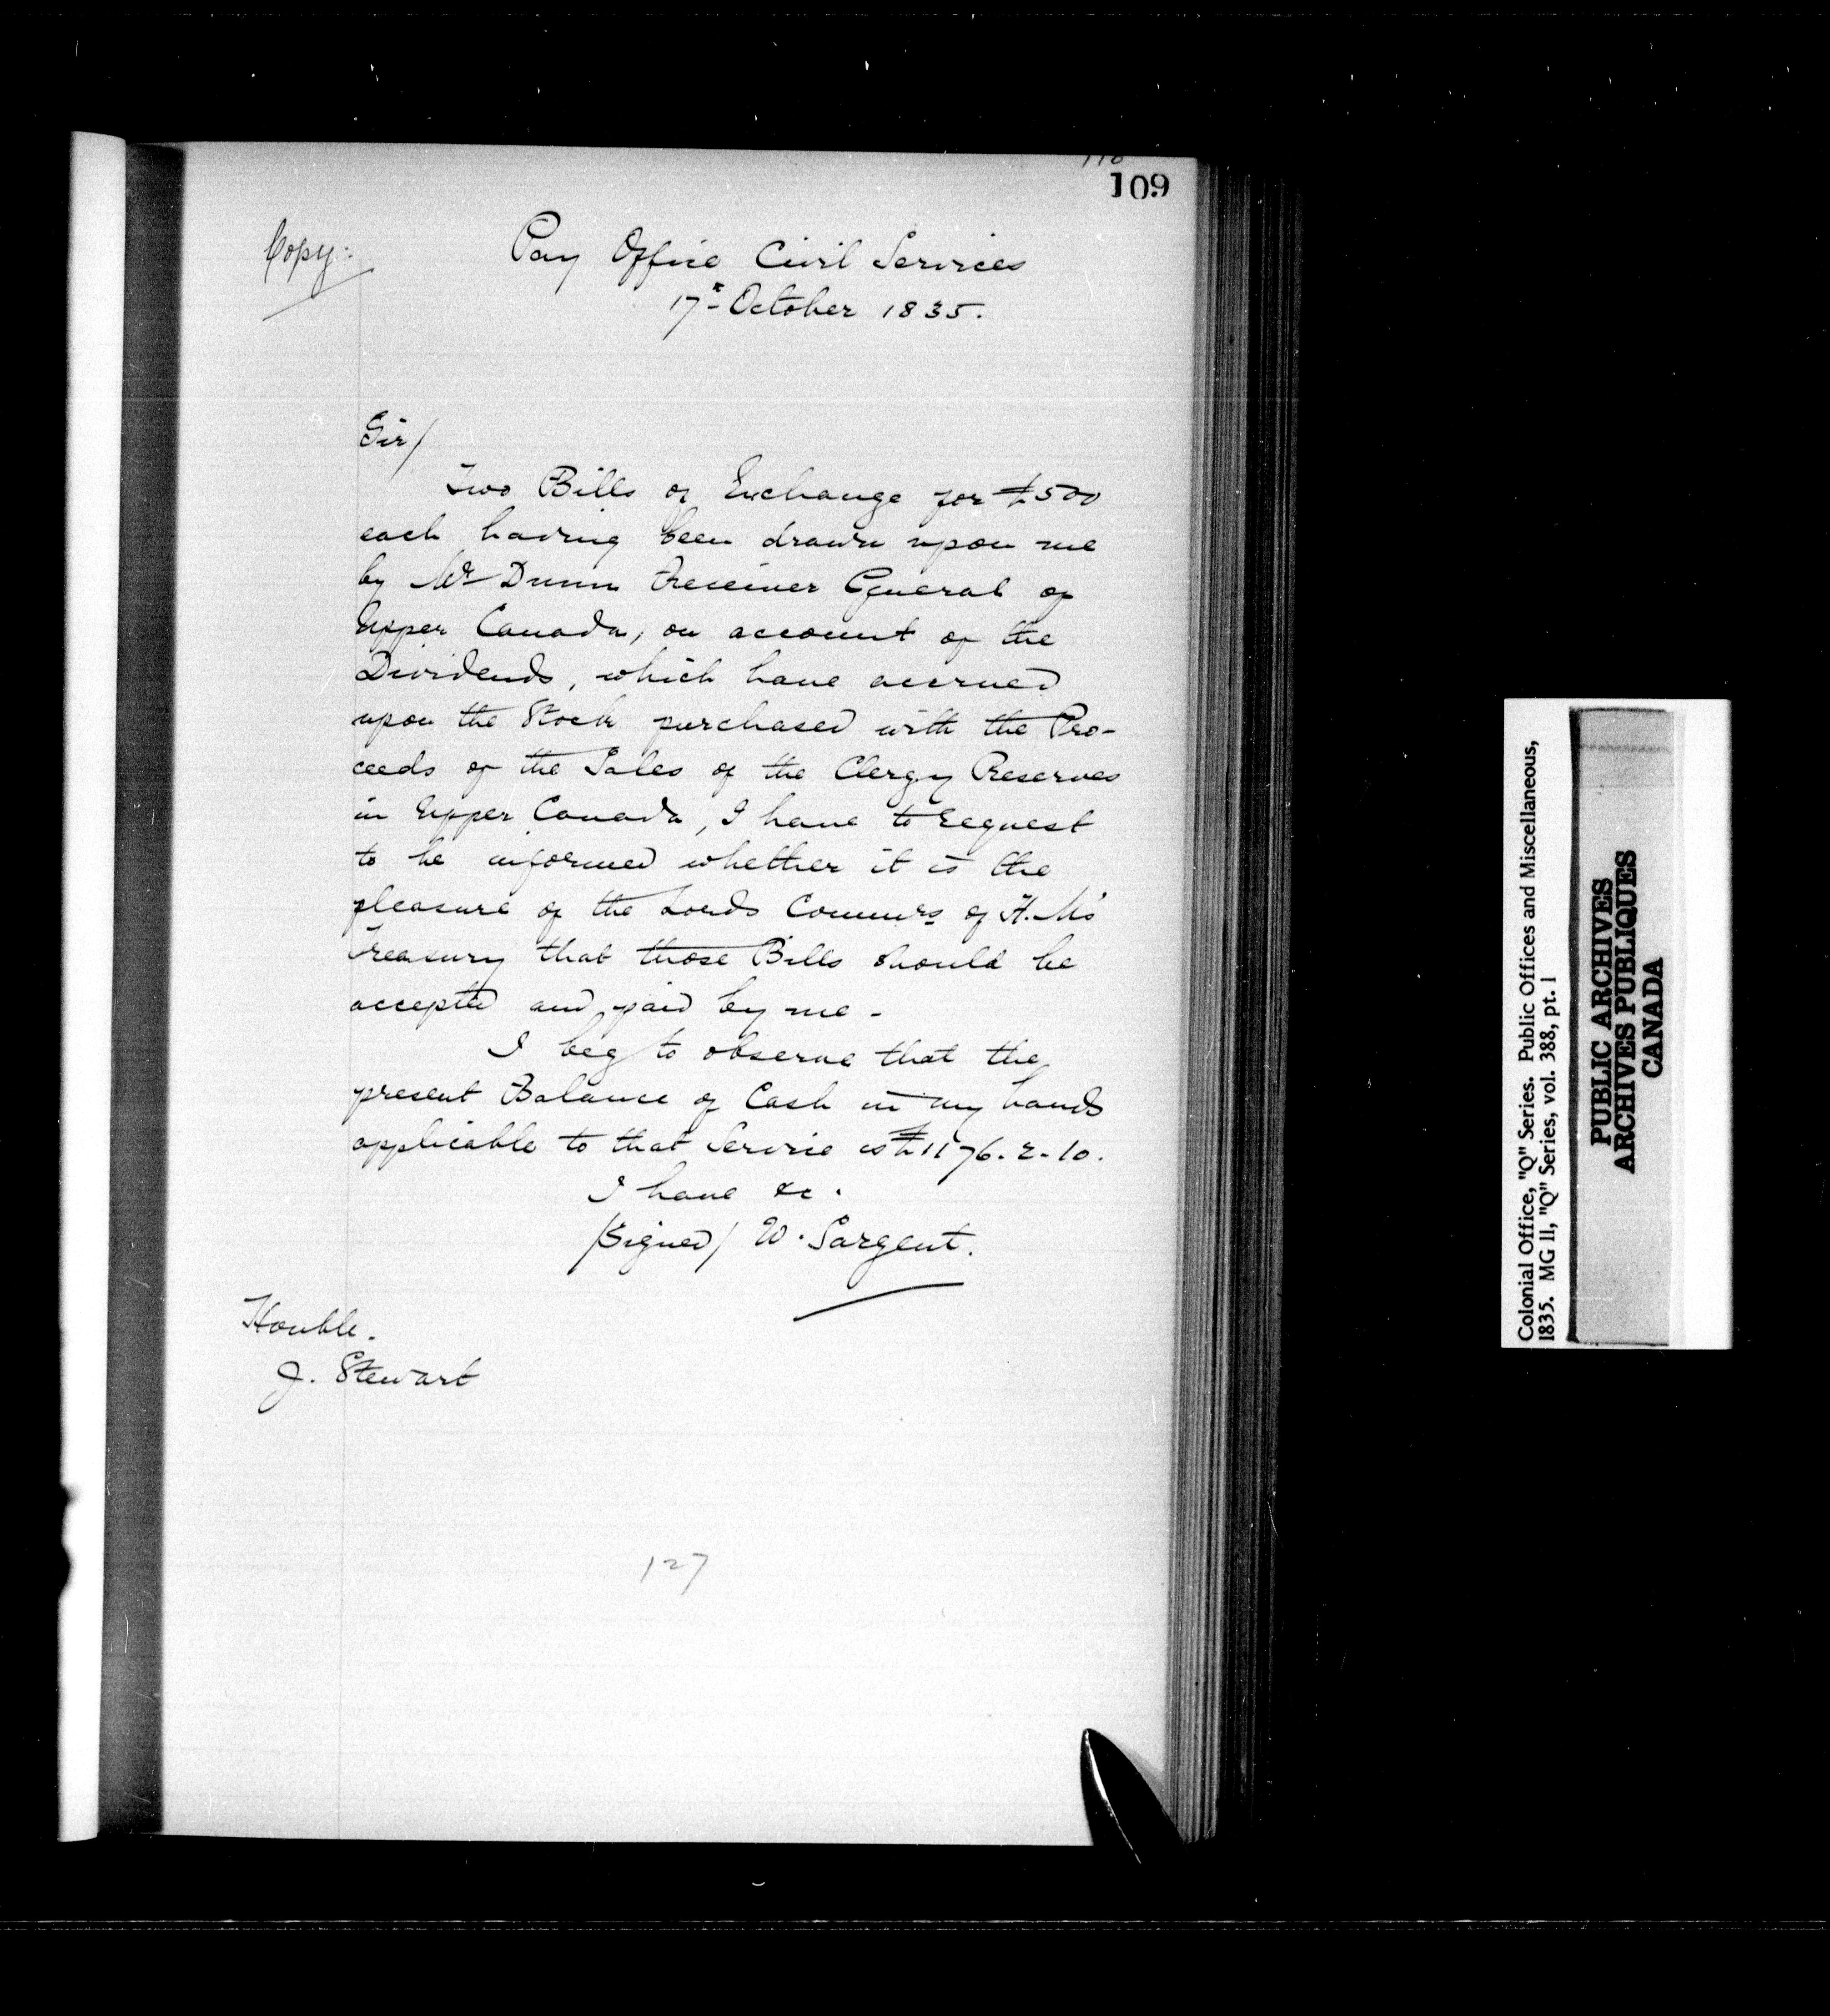 109
Copy:
Pay Office Civil Services
17th October 1835.
Sir/
Two Bills of Exchange for £500
each having been drawn upon me
by Mr Dunn Receiver General of
Upper Canada, on account of the
Dividends, which have accrued
upon the Stock purchased with the Pro-
ceeds of the Sales of the Clergy Reserves
in Upper Canada, I have to request
to be informed whether it is the
pleasure of the Lords Commrs of H. M's
Treasury that those Bills should be
accepted and paid by me -
I beg to observe that the
present Balance of Cash in my hands
applicable to that Service is £1176.2.10.
I have &c.
/Signed/ W. Sargent.
Honble.
J. Stewart
127
Colonial Office, "Q" Series. Public Offices and Miscellaneous,
1835. MG 11, "Q" Series, vol. 388, pt. 1
PUBLIC ARCHIVES
ARCHIVES PUBLIQUES
CANADA